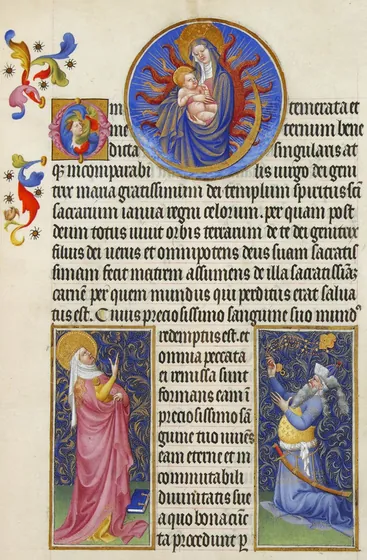 O m temerata et
me ternum bene
dicta singularis at
q; incomparabi lis virgo dei geni
trix maria gratissimum dei templum spiritus sci
sacrarium ianua regni celorum. per quam post
deum totus vivit orbis terrarum de te dei genitrix
filius dei verus et omnipotens deus suam sacratis
simam fecit matrem assumens de illa sacratissimā
carnē per quem mundus qui perditus erat salva
tus est. Cuius preciosissimo sanguine suo mund9
redemptus est. et
omnia peccata
ei remissa sunt
formans eam ī
preciosissimo sā
guine tuo
eam eterne et in
commutabili
divinitatis sue
a quo bona cūc
ta procedunt p